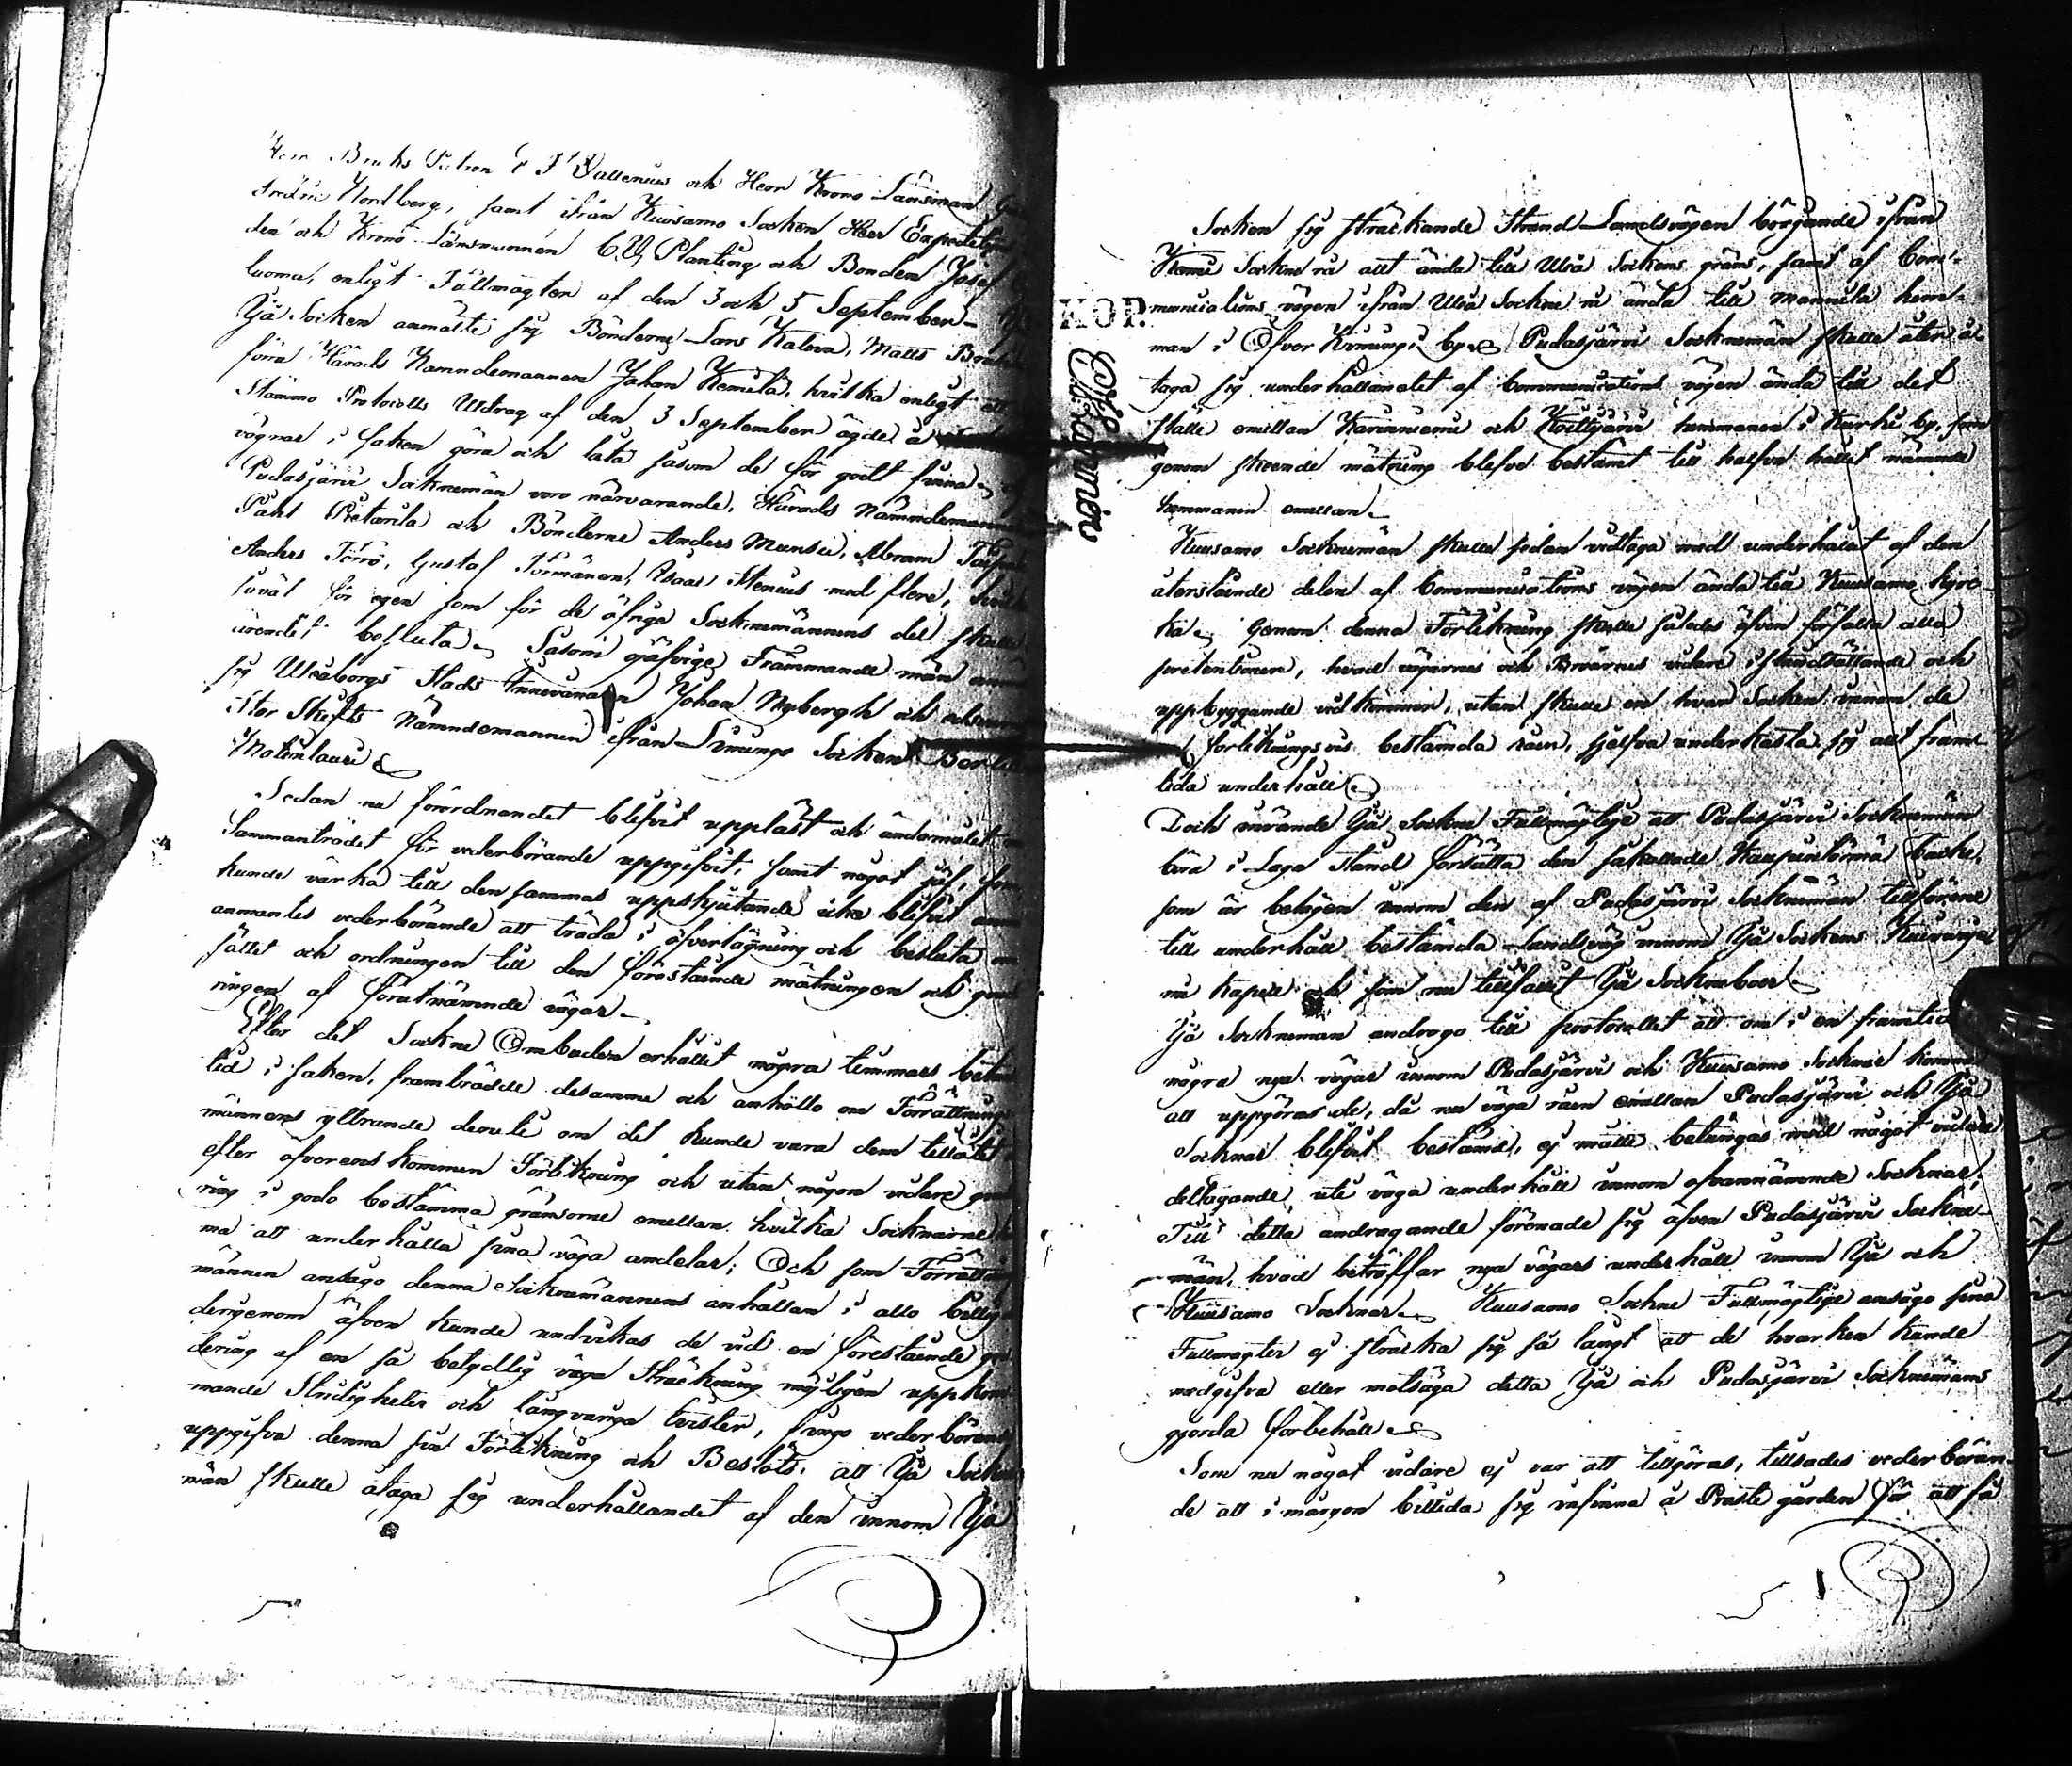 Herr Bruks Patron E F Wallenius och Herr Krono Länsman
Fredric Nordberg, samt ifrån Kuusamo Socken Herr Expeditions
den och Krono Länsmannen C W Planting och Bonden Josef
luoma, enligt Fullmagter af den 3 och 5 September
Ijå Socken anmälte sig Bönderne Lars Kaleva, Matts
förra Härads Nämndemannen Johan Kemila, hvilka enligt ett
Stämmo Protocolls Utdrag af den 3 September ägde å
vägnar i saken göra och låta såsom de för godt finna
Pudasjärvi Socknemän voro närvarande, Härads Nämndemannen
Påhl Pietarila och Bönderne Anders Mursu, Abram
Anders Törrö, Gustaf Törmänen, Isaac Stenius med flere,
såväl för egen som för de öfrige Socknemännens del skulle
ärendet besluta. Såsom ojäfvige Främmande män
sig Uleåborgs Stads Innevånaren Johan Nybergh och
Stor Skifts Nämndemannen ifrån Limingo Socken
Matinlauri
Sedan nu förordnandet blifvit uppläst och ändamålet
Sammanträdet för vederbörande uppgifvit, samt något jäf, som
kunde värka till den sammas uppskjutande icke blifvit
anmantes vederbörande att träda i öfverlägning och besluta om
sättet och ordningen till den förestående mätningen och
ringen af förutnämnde vägar
Efter det Sockne Ombuden erhållit några timmars
tid i saken, framträdde desamme och anhöllo om Förrättnings
männens yttrande deruti om det kunde vara dem tillåtet
efter öfverenskommen Förlikning och utan någon vidare
ring i godo bestämma gränsorne emellan hvilka Socknarne
ma att underhålla sina väga andelar; Och som Förrättnings
männen ansågo denna Socknemännens anhållan i allo billig
derigenom äfven kunde undvikas de vid en förestående
dering af en så betydlig väga sträckning möjligen uppkom
mande Stridigheter och långvariga tvister, fingo vederbörande
uppgifva denna sin Förlikning och Beslöts, att Ijå Sockne
män skulle åtaga sig underhållandet af den innom Ijå
Socken sig sträckande Strand Landsvägen börjande ifrån
Kemi Sockne rå allt ända till Uleå Sockens gräns, samt af Com-
munications vägen ifrån Uleå Sockne rå ända till Mannila hem-
man i Öfver Kiiminge by. Pudasjärvi Socknemän skulle åter å-
taga sig underhållandet af Communications vägen ända till det
ställe emellan Karinniemi och Koillijärvi hemmanen i Kurki by, som
genom skeende mätning blefve bestämt till halfva hållet nämnde
hemmanen emellan
Kuusamo Socknemän skulle sedan vidtaga med underhållet af den
återstående delen af Communications vägen ända till Kuusamo kyrc-
ka. Genom denna Förlikning skulle således äfven förfalla alla
pretentioner, hvad vägarnes och Broarnes vidare iståndsättande och
uppbyggande vidkommer, utan skulle en hvar Socken innom de
förliknings vis bestämda råen, sjelfva underkasta sig allt fram-
tida underhåll
Doch införde Ijå Sockne Fullmägtige att Pudasjärvi Socknemän
böra i Laga Stånd försätta den såkallade Kaupintörmä backe,
som är belägen innom den af Pudasjärvi Socknemän tillförene
till underhåll bestämda Landsväg innom Ijå Sockens Kuivanie
mi Kapell och som nu tillfallit Ijå Sockneboer
Ijå Socknemän androgo till protocollet att om i en framtid
några nya vägar innom Pudasjärvi och Kuusamo Socknar komma
att uppgöras de, då nu väga råen emellan Pudasjärvi och Ijå
Socknar blifvit bestämd, ej måtte betungas med något vidare
deltagande, uti väga underhåll innom ofvannämnde Socknar;
Till detta andragande förenade sig äfven Pudasjärvi Sockne-
män, hvad beträffar nya vägars underhåll innom Ijå och
Kuusamo Socknar. Kuusamo Sockne Fullmägtige ansågo sina
Fullmagter ej sträcka sig så långt att de hvarken kunde
medgifva eller motsäga detta Ijå och Pudasjärvi Socknemäns
gjorda förbehåll
Som nu något vidare ej var att tillgöras, tillsades vederböran-
de att i morgon bittida sig infinna å Prästegården för att få
KOP.